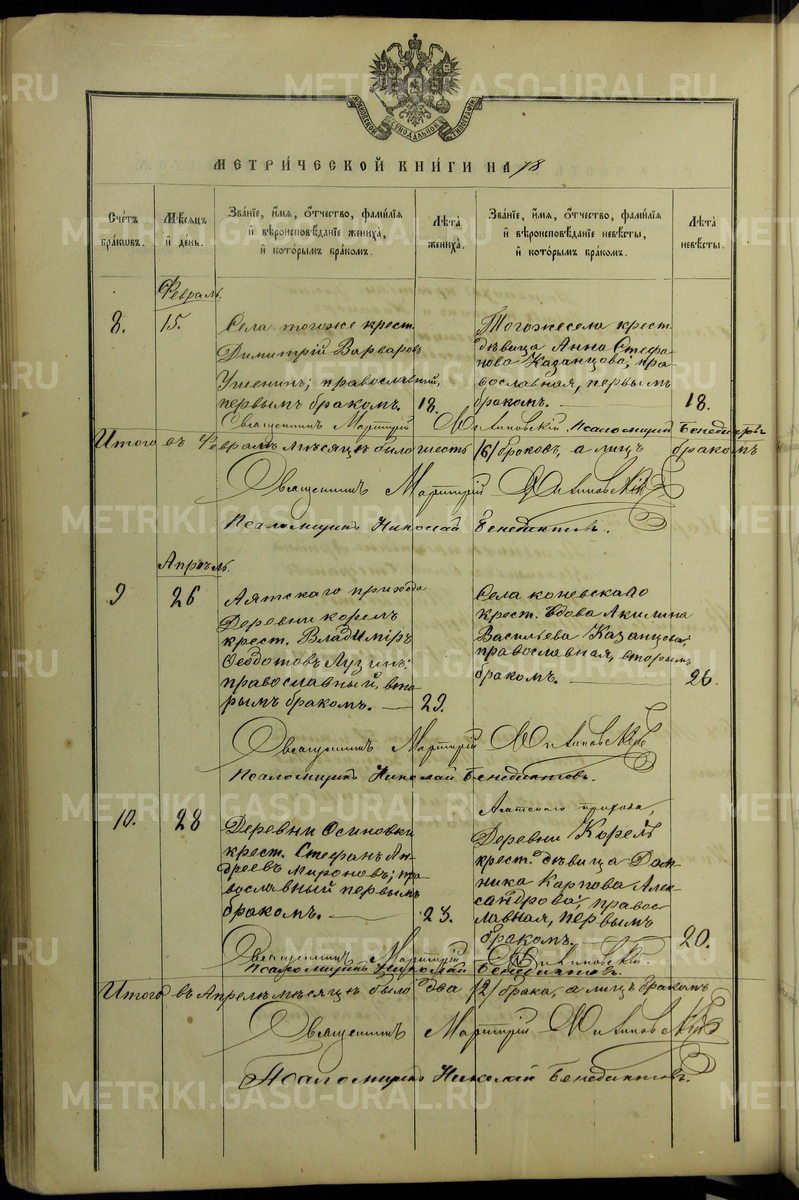 СѴНОДАЛЬНОЙ
ТИПОГРАФІИ
МЕТРИЧЕСКОЙ КНИГИ НА 18
Счетъ браковъ.
Мѣсяцъ и день.
Званіе, имя, отчество, фамилія и вѣроисповѣданіе жениха, и которымъ бракомъ.
Лѣта жениха.
Званіе, имя, отчество, фамилія и вѣроисповѣданіе невѣсты, и которымъ бракомъ.
Лѣта невѣсты.
Февраль.
8.
15.
Села тогоже крест.
Димитрій Варваровъ
Ушенинъ; православный,
первымъ бракомъ.
18.
Тогоже села крест.
дѣвица Анна Стефа-
нова Казанцова; пра-
вославная, первымъ
бракомъ.
18.
Священникъ Мартирій Псаломщикъ Бенедиктовъ
Итого въ Февралѣ мѣсяцѣ было шесть /6/ браковъ, а лицъ бракомъ
Священникъ Мартирій
Псаломщикъ Николай Бенедиктовъ.
Апрѣль.
9
26
Аятскаго прихода
Деревни Корелъ
крест. Владиміръ
Ѳеодотовъ Лузинъ;
православный, вто-
рымъ бракомъ.
29.
Села Коневскаго
крест. вдова Акилина
Васильева Казанцова,
православная, вторымъ
бракомъ.
26.
Священникъ Мартирій
Псаломщикъ Николай Бенедиктовъ.
10.
28
Деревни Осиновки
крест. Стефанъ Ан-
дреевъ Мироновъ; пра-
вославный первымъ
бракомъ.
23.
Аятскаго прихода,
Деревни Корелъ
крест. дѣвица Дом-
ника Карпова Алек-
сандрова, правос-
лавная, первымъ
бракомъ.
20.
Священникъ Мартирій
Псаломщикъ Николай Бенедиктовъ.
Итого въ Апрелѣ мѣсяцѣ было два /2/ брака, а лицъ бракомъ
Священникъ Мартирій
Псаломщикъ Николай Бенедиктовъ.
METRIKI.GASO-URAL.RU